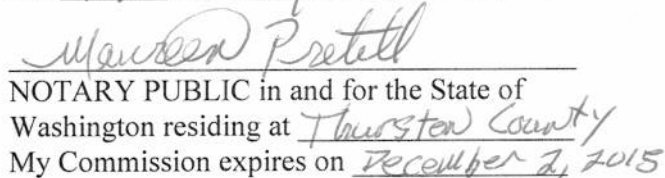 Maureen Pretell
NOTARY PUBLIC in and for the State of
Washington residing at Thurston County
My Commission expires on December 2, 2015